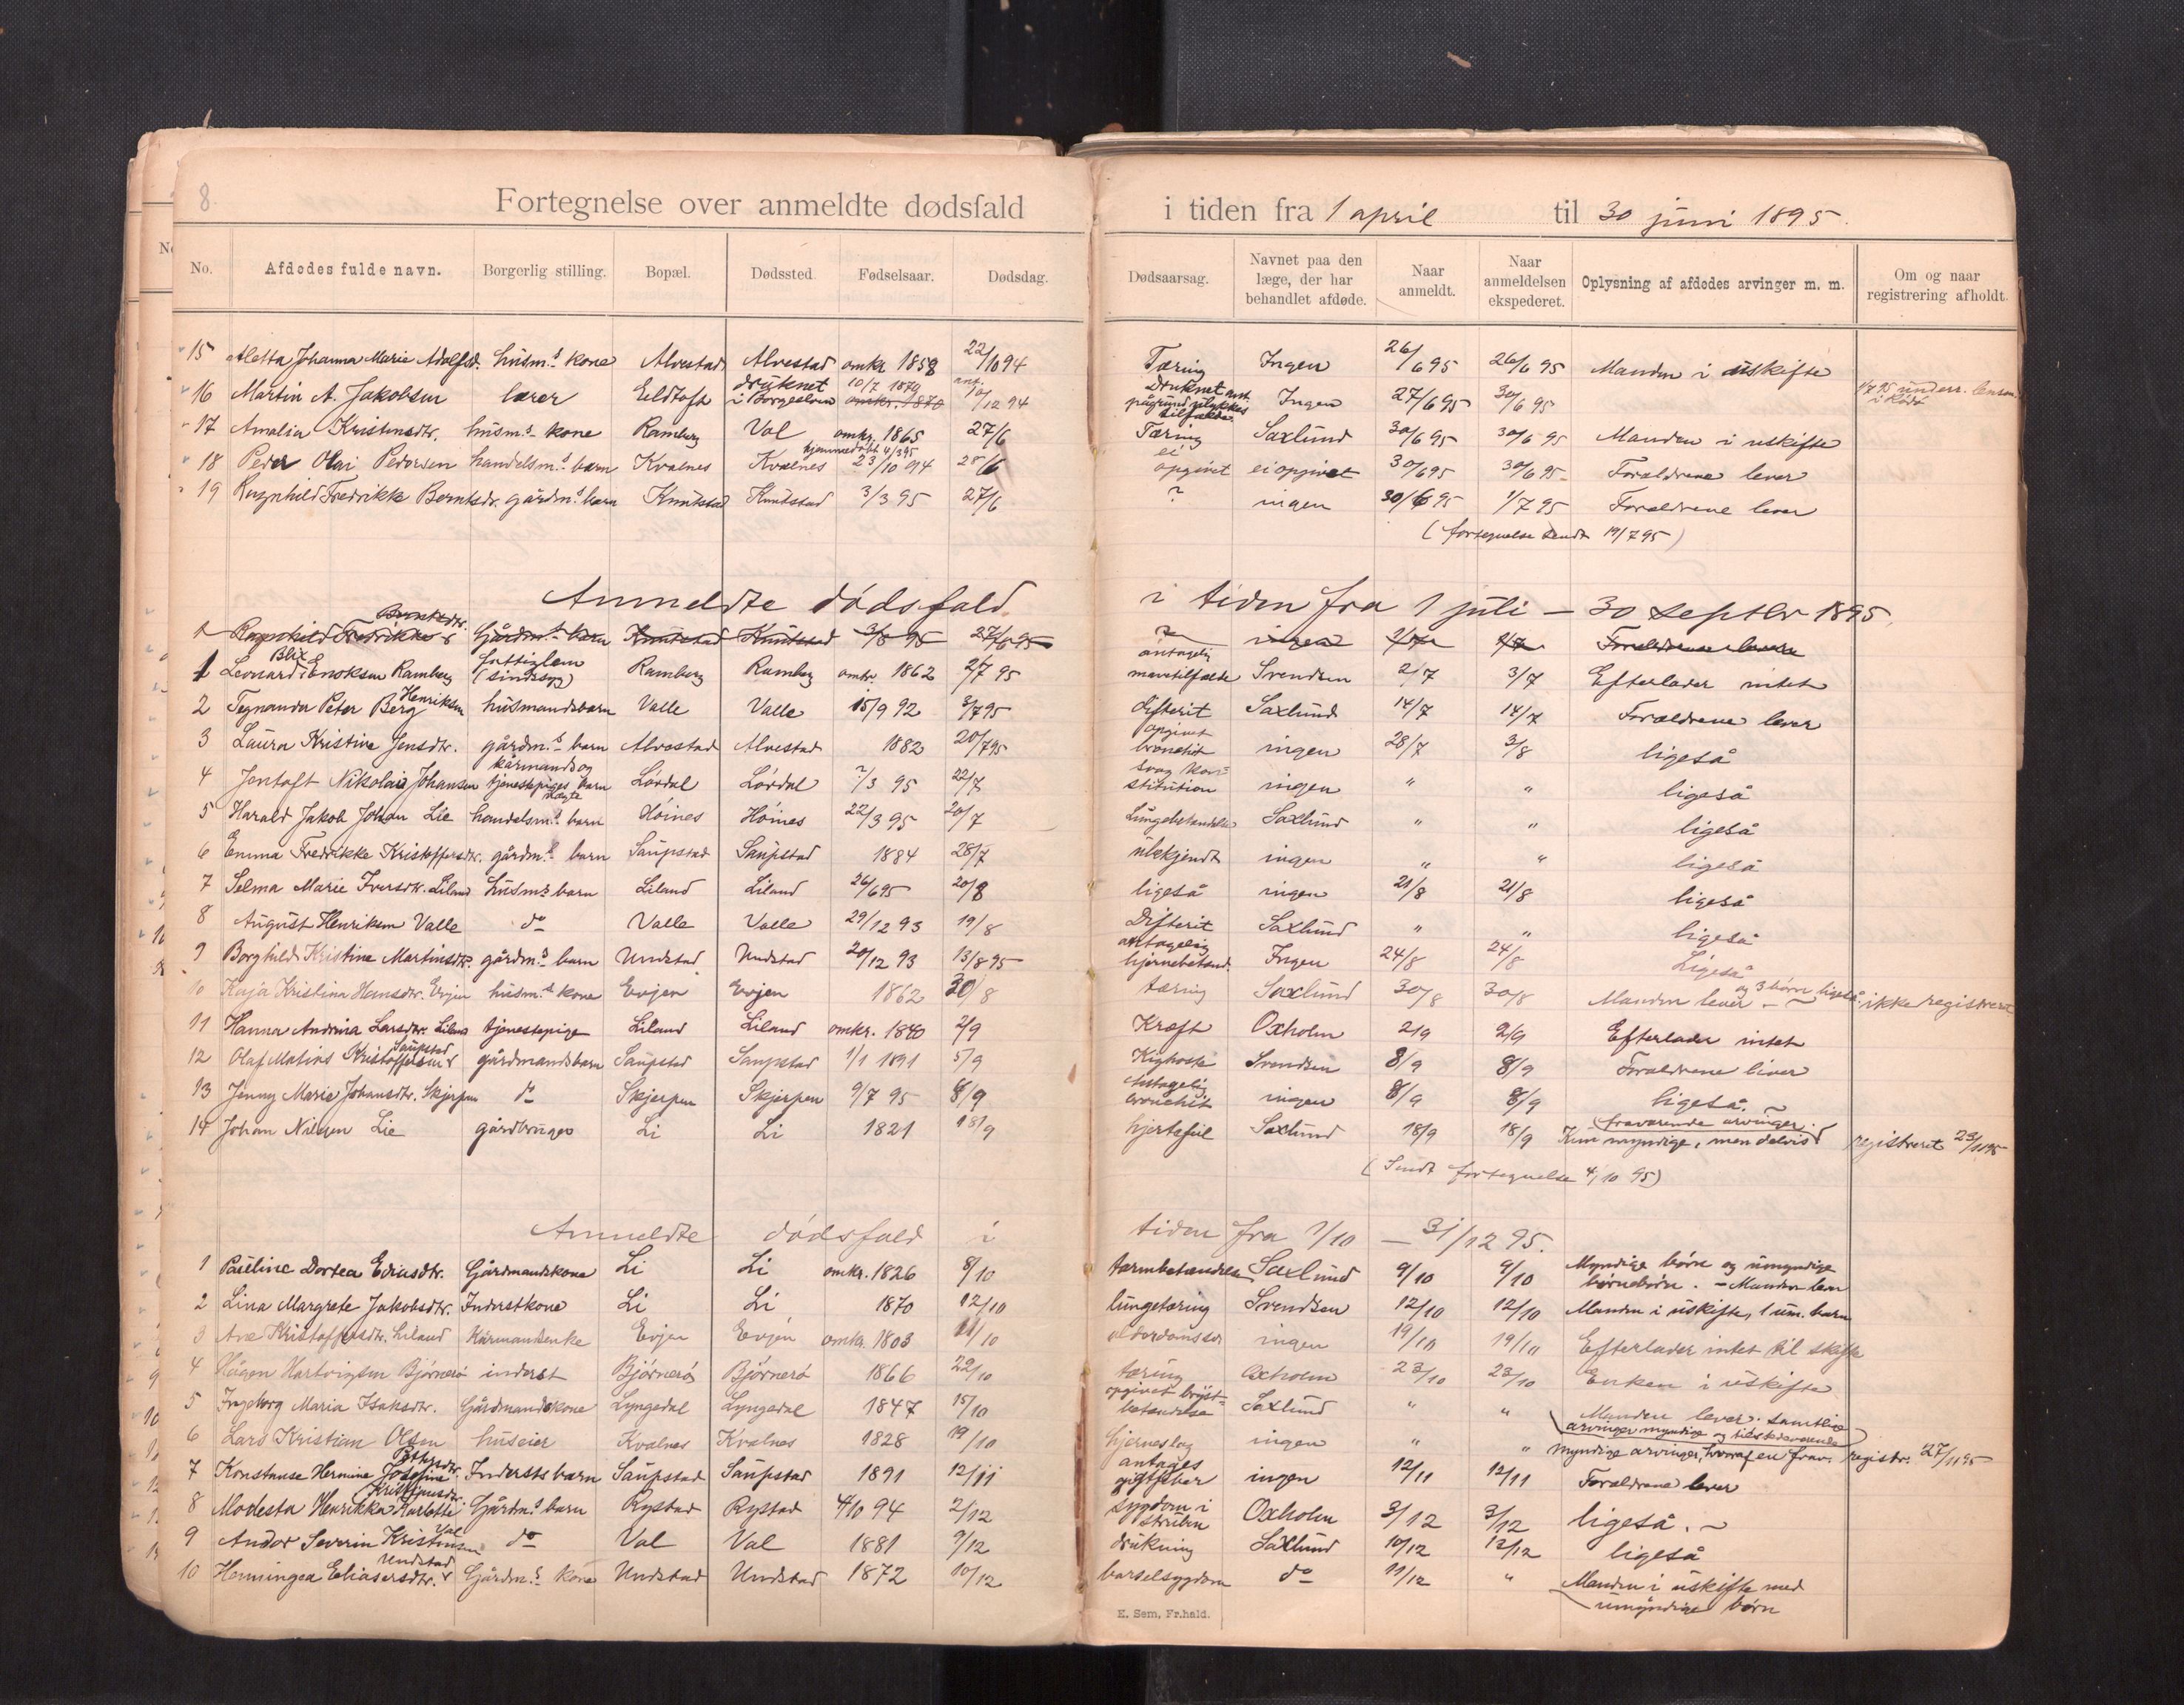 8
Fortegnelse over anmeldte dødsfald i tiden fra 1 april til 30 juni 1895.
No. Afdødes fulde navn. Borgerlig stilling. Bopæl. Dødssted. Fødselsaar. Dødsdag. Dødsaarsag. Navnet paa den læge, der har behandlet afdøde. Naar anmeldt. Naar anmeldelsen ekspederet. Oplysning af afdødes arvinger m. m. Om og naar registrering afholdt.
15 Aletta Johanna Marie Adolfsd. husm.s kone Alvestad Alvestad omkr 1858 22/10 94 Tæring Ingen 26/6 95 26/6 95 Manden i uskifte
16 Martin A. Jakobsen lærer Eldtoft druknet i Borgeelven 10/7 1870 omkr. 1870 ant. 10/12 94 Druknet ant. pågrund ulykkestilfælde Ingen 27/6 95 30/6 95 1/7 95 underr. lensm. i Bødø
17 Amalia Kristensdtr. husm.s kone Ramberg Val omkr. 1865 27/6 Tæring Saxlund 30/6 95 30/6 95 Manden i uskifte
18 Peder Olai Pedersen handelsm.s barn Kvalnes Kvalnes hjemmedøbt 4/3 95 23/10 94 25/6 ei opgivet ei opgivet 30/6 95 30/6 95 Forældrene lever
19 Ragnhild Fredrikke Berntsdr. gårdm.s barn Knutstad Knutstad 3/3 95 27/6 ? ingen 30/6 95 1/7 95 Forældrene lever
(fortegnelse sendt 19/7 95)
Anmeldte dødsfald i tiden fra 1 juli – 30 septbr 1895
1 Ragnhild Fredrikke Berntsdtr. Gårdm.s barn Knutstad Knutstad 3/3 95 27/6 95 ? ingen 2/7 2/7 Forældrene lever
1 Leonard Blix Enoksen Ramberg fattiglem (sindssyg) Ramberg Ramberg omkr. 1862 2/7 95 antagelig mavetilfælde Svendsen 2/7 3/7 Efterlader intet
2 Tegnander Peter Berg Henriksen husmandsbarn Valle Valle 15/9 92 3/7 95 difterit Saxlund 14/7 14/7 Forældrene lever
3 Laura Kristine Jensdtr. gårdm.s barn Alvestad Alvestad 1882 20/7 95 opgivet bronchit ingen 28/7 3/8 ligeså
4 Jentoft Nikolai Johansen kårmands og tjenestepiges uægte barn Lørdal Lørdal ?/3 95 22/7 svag konstitution ingen " " ligeså
5 Harald Jakob Johan Lie handelsm.s barn Høines Høines 22/3 95 20/7 Lungebetændelse Saxlund " " ligeså
6 Emma Fredrikke Kristoffersdtr. gårdm.s barn Saupstad Saupstad 1884 28/7 ubekjendt ingen " " ligeså
7 Selma Marie Iversdtr. Liland husm.s barn Liland Liland 26/6 95 20/8 ligeså ingen 21/8 21/8 ligeså
8 August Henriksen Valle do Valle Valle 29/12 93 19/8 Difterit Saxlund " " ligeså
9 Borghild Kristine Martinsdtr. gårdm.s barn Undstad Undstad 20/12 93 13/8 95 antagelig hjernebetænd. Ingen 24/8 24/8 Ligeså
10 Kaja Kristina Hansdtr. Evjen husm.s kone Evjen Evjen 1862 30/8 tæring Saxlund 30/8 30/8 Manden lever og 3 børn ligeså. ikke registreret
11 Hanna Andrina Larsdtr. Liland tjenestepige Liland Liland omkr. 1840 2/9 Kræft Oxholm 2/9 2/9 Efterlader intet
12 Olaf Matias Kristoffersen Saupstad gårdmandsbarn Saupstad Saupstad 1/1 1891 5/9 Kighoste Svendsen 8/9 8/9 Forældrene lever
13 Jenny Marie Johansdtr. Skjerpen do Skjerpen Skjerpen 9/7 95 8/9 Antagelig bronchit ingen 8/9 8/9 ligeså.
14 Johan Nielsen Lie gårdbruger Li Li 1821 18/9 hjertefeil Saxlund 18/9 18/9 Kun myndige, men delvis fraværende arvinger. registreret 23/11 95
(Sendt fortegnelse 4/10 95)
Anmeldte dødsfald i tiden fra 1/10 – 31/12 95.
1 Pauline Dortea Ediasdtr. Gårdmandskone Li Li omkr. 1826 8/10 tarmbetændelse Saxlund 9/10 9/10 Myndige børn og umyndige børnebørn. – Manden lever
2 Lina Margrete Jakobsdtr. Inderstkone Li Li 1870 12/10 lungetæring Svendsen 12/10 12/10 Manden i uskifte, 1 um. barn
3 Ane Kristoffersdtr. Liland Kårmandsenke Evjen Evjen omkr. 1803 11/10 alderdomssv. ingen 19/10 19/10 Efterlader intet til skifte
4 Hågen Hartvigsen Bjørnerø inderst Bjørnerø Bjørnerø 1866 22/10 tæring Oxholm 23/10 23/10 Enken i uskifte
5 Ingeborg Maria Isaksdtr. Gårdmandskone Lyngedal Lyngedal 1847 15/10 opgivet brystbetændelse Saxlund " " Manden lever. Samtlige arvinger myndige og tilstedeværende
6 Lars Kristian Olsen huseier Kvalnes Kvalnes 1828 19/10 hjerneslag ingen " " Myndige arvinger, hvoraf en frav. registr. 27/11 95
7 Konstanse Hermine Josefine Pedersdtr. Inderstsbarn Saupstad Saupstad 1891 12/11 antages gigtfeber ingen 12/11 12/11 Forældrene lever
8 Modesta Henrikka Karlotte Kristensdtr. Gårdm.s barn Rystad Rystad 4/10 94 2/12 sygdom i struben Oxholm 3/12 3/12 ligeså.
9 Andor Severin Kristensen Val do Val Val 1881 9/12 drukning Saxlund 10/12 12/12 ligeså
10 Henningea Eliasersdtr. Undstad Gårdm.s kone Undstad Undstad 1872 10/12 barselsygdom do 11/12 " Manden i uskifte med umyndige børn
E. Sem, Fr.hald.